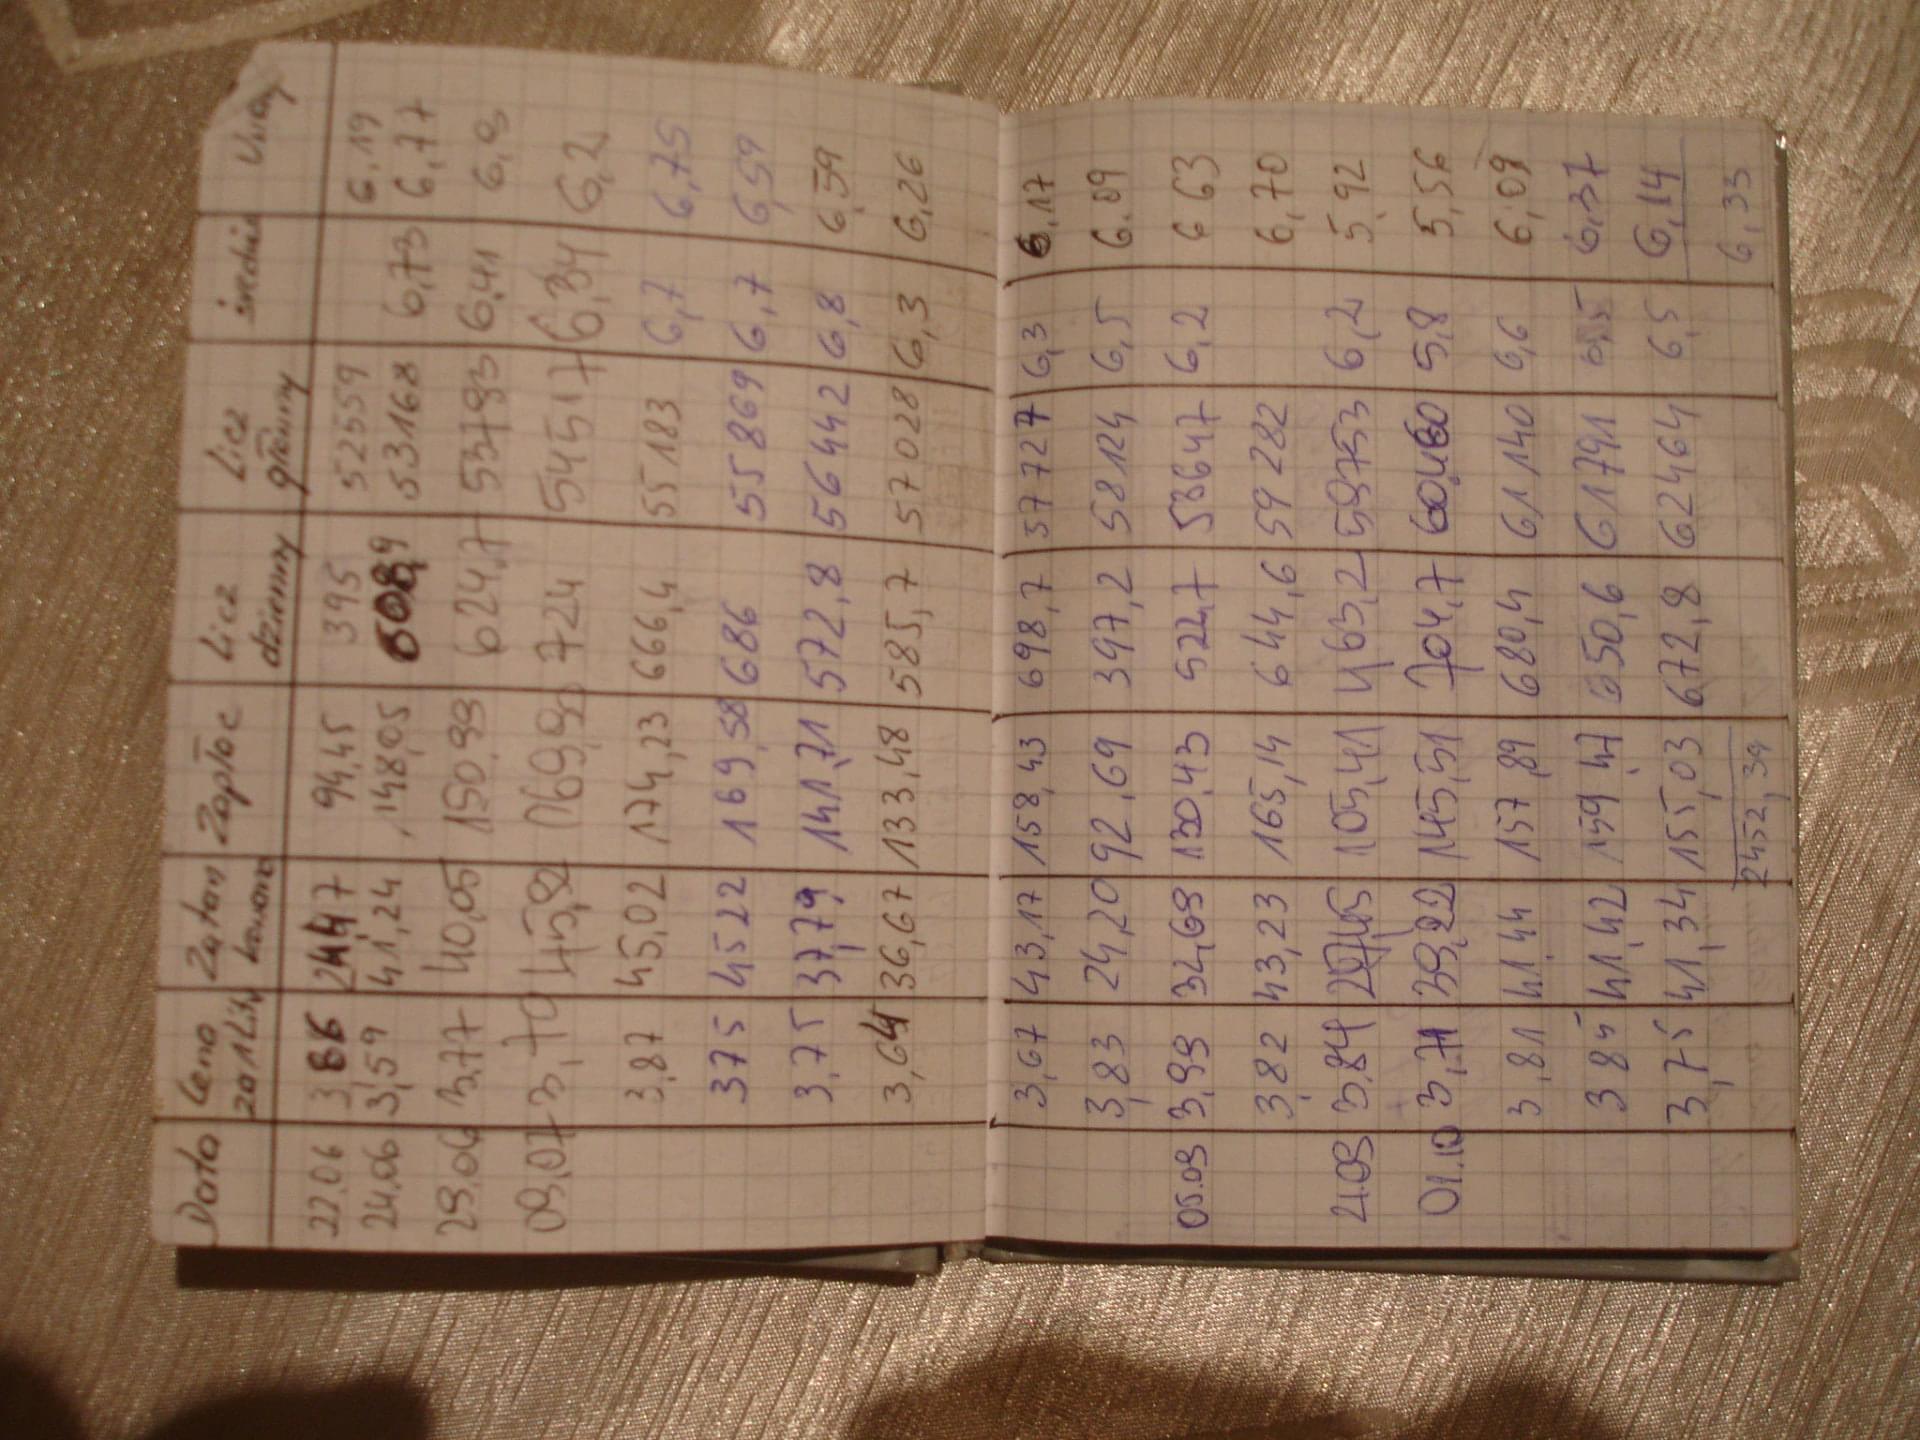 Data Cena za 1 Litr Zatankowano Zapłac Licz dzienny Licz główny średnia Uwagi
22.06 3,86 24,47 94,45 395 52559 6,19
24.06 3,59 41,24 148,05 608,9 53168 6,73 6,77
29.06 3,77 40,05 150,99 624,7 53793 6,41 6,9
09.07 3,70 45,92 169,90 724 54517 6,34 6,2
3,87 45,02 174,23 666,4 55183 6,7 6,75
375 4522 169,58 686 55869 6,7 6,59
3,75 37,79 141,71 572,8 56442 6,8 6,59
3,64 36,67 133,48 585,7 57028 6,3 6,26
3,67 43,17 158,43 698,7 57727 6,3 6,17
3,83 24,20 92,69 397,2 58124 6,5 6.09
05.09 3,99 34,69 130,43 5227 58647 6,2 6 63
3,82 43,23 165,14 644,6 59282 6,70
21.09 3.84 27,45 105,41 463,2 59753 6,2 5,92
01.10 3,71 39,22 145,51 704,7 60460 5,8 5,56
3,81 41,44 157,89 680,4 61140 6,6 6,09
3 85 41,42 159,47 650,6 61791 6,5 6,37
3,75 41,34 155,03 672,8 62464 6,5 6,14
2452,39 6,33